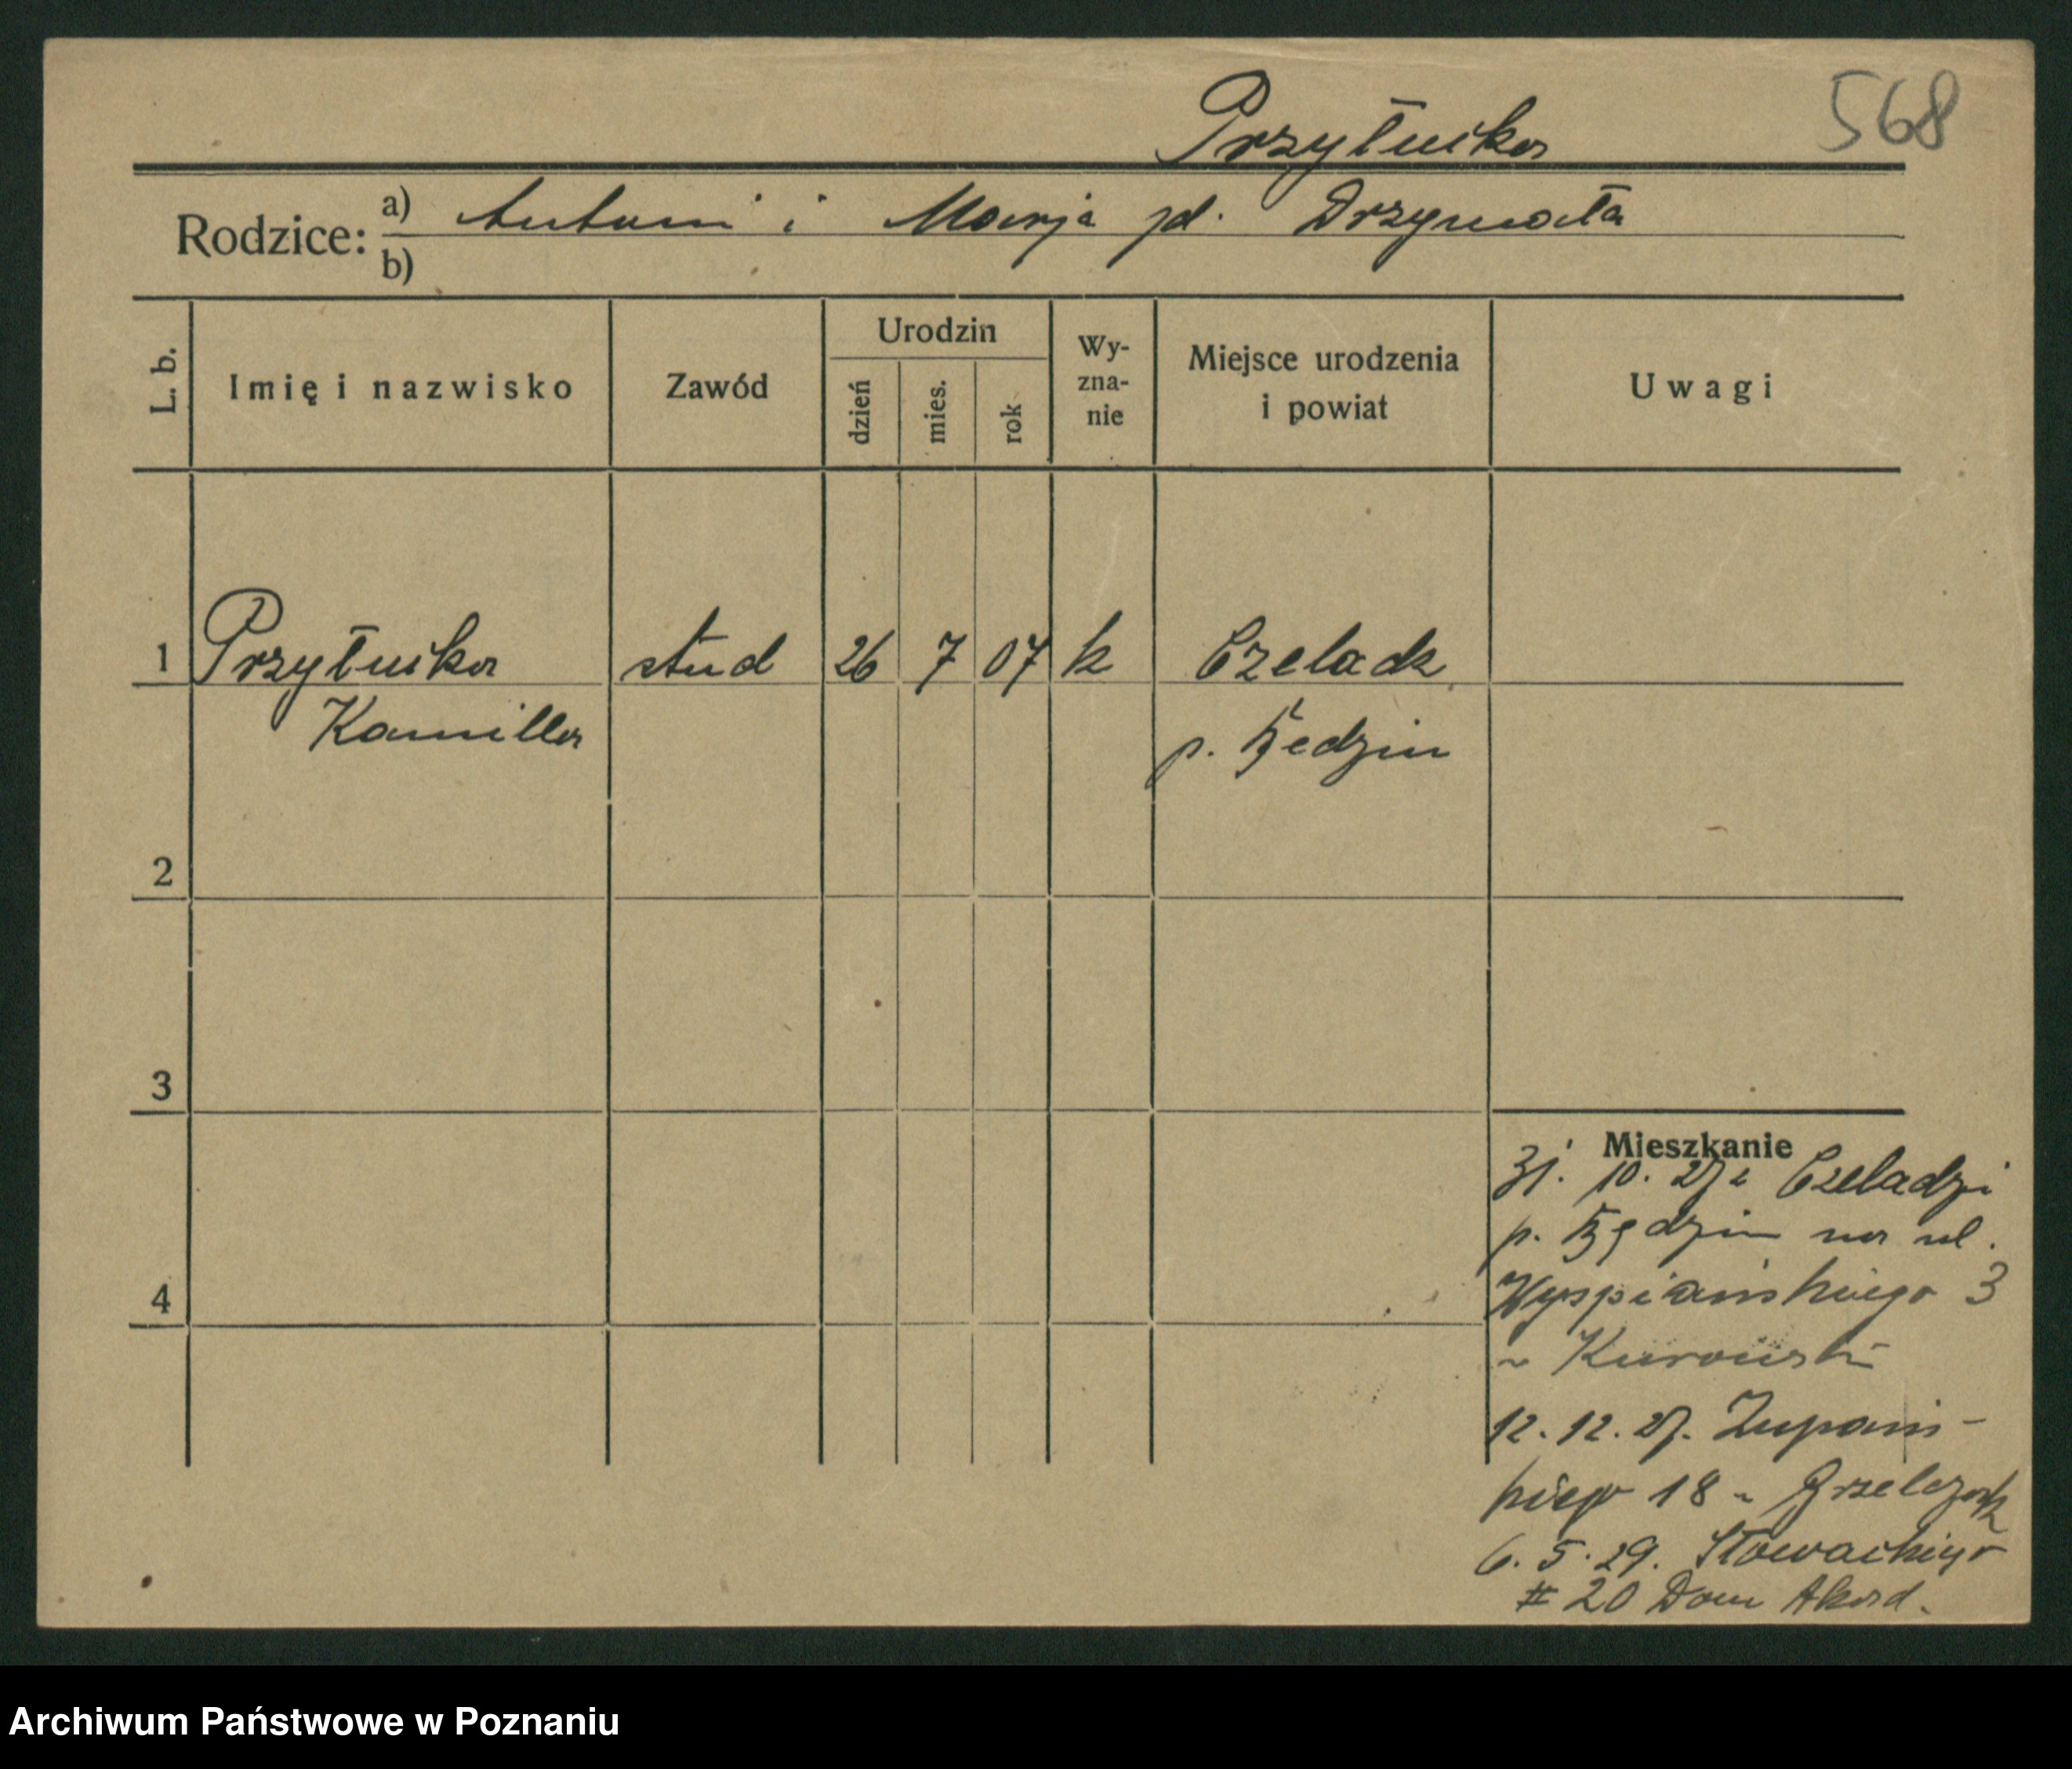 568
Przyłuska
Rodzice: a) Antoni i Marja zd. Drzymała
b)
L. b. Imię i nazwisko Zawód Urodzin dzień mies. rok Wy-zna-nie Miejsce urodzenia i powiat Uwagi
1 Przyłuska stud 26 7 07 k Czeladz
Kamilla p. Będzin
2
3
4
Mieszkanie
31. 10. 27 z Czeladzi
p. Będzin na ul.
Wyspiańskiego 3
u
12. 12. 27. Zupań-
skiego 18 u Grzelczak
6. 5. 29. Słowackiego
# 20 Dom Akad.
Archiwum Państwowe w Poznaniu